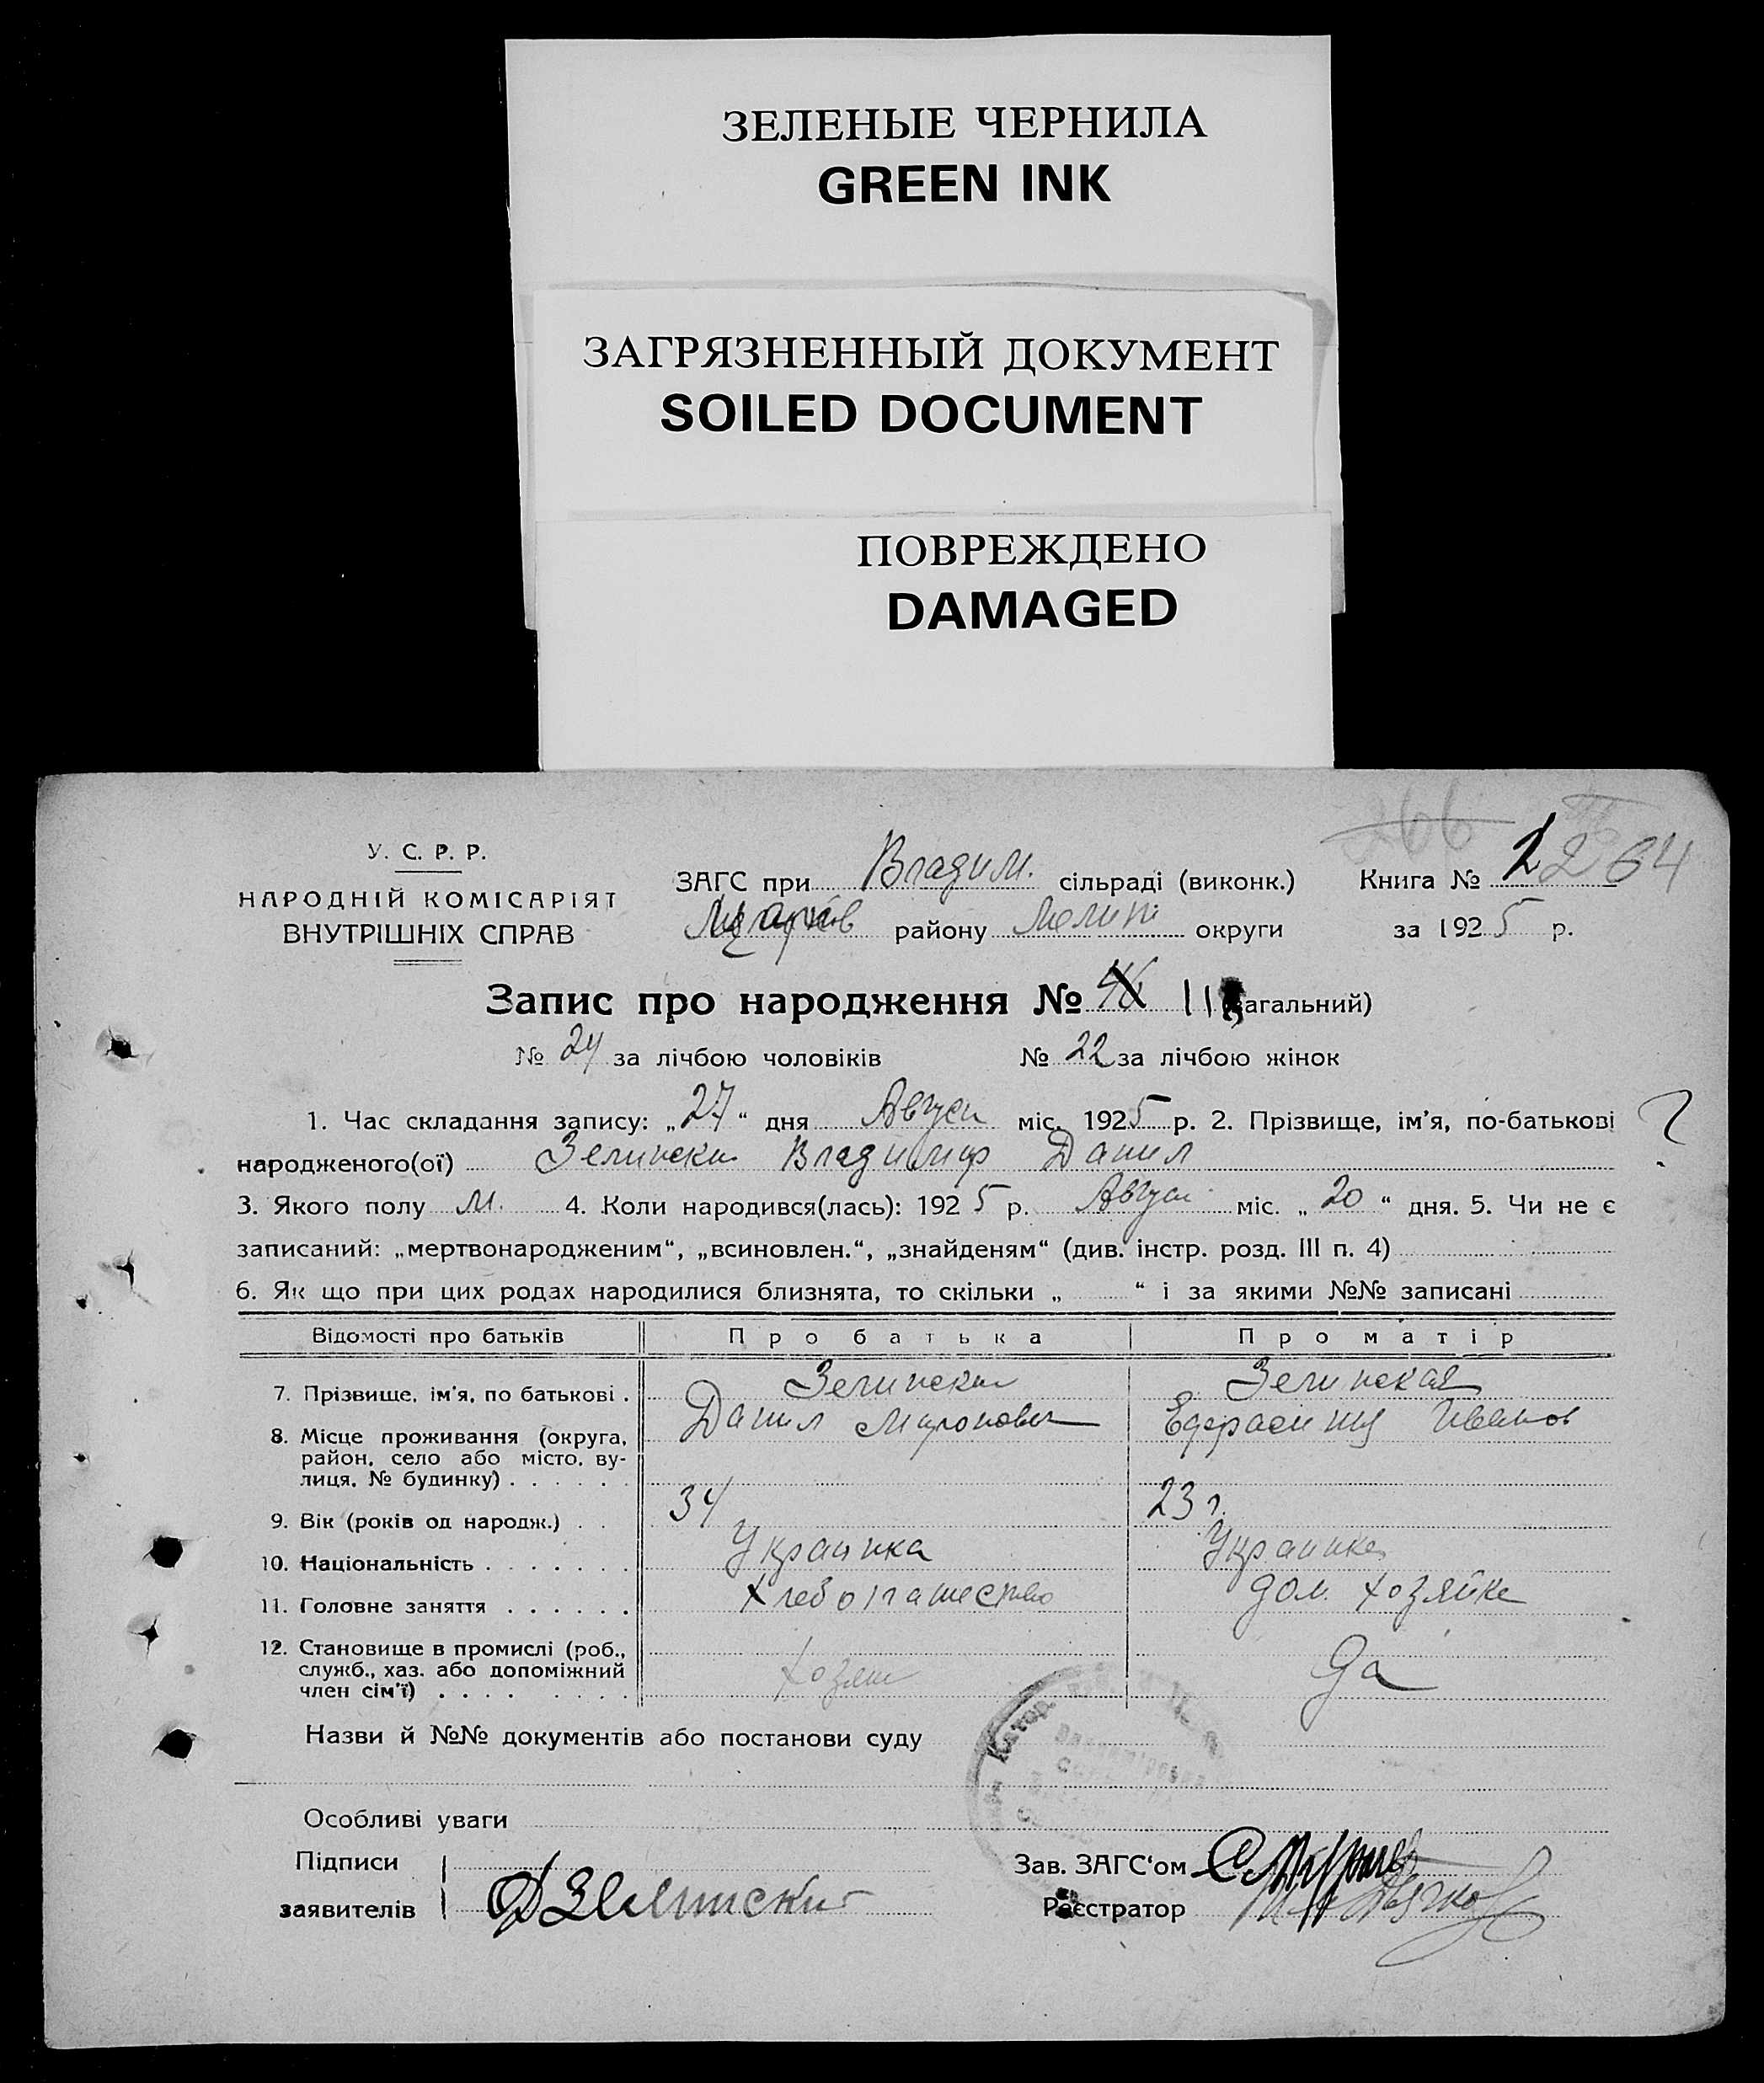 ЗЕЛЕНЫЕ ЧЕРНИЛА
GREEN INK
ЗАГРЯЗНЕННЫЙ ДОКУМЕНТ
SOILED DOCUMENT
ПОВРЕЖДЕНО
DAMAGED
266
У. С. Р. Р.
НАРОДНІЙ КОМІСАРІЯТ
ВНУТРІШНІХ СПРАВ
ЗАГС при Владим. сільраді (виконк.) Книга № 2 264
району Мелит округи за 1925 р.
Запис про народження № 46 11 (загальний)
№ 24 за лічбою чоловіків № 22 за лічбою жінок
1. Час складання запису: „27“ дня Август міс. 1925 р. 2. Прізвище, ім’я, по-батькові ?
народженого(ої) Зелински Владимир Данил
3. Якого полу М. 4. Коли народився(лась): 1925 р. Август міс. „20“ дня. 5. Чи не є
записаний: „мертвонародженим“, „всиновлен.“, „знайденям“ (див. інстр. розд. III п. 4)
6. Як що при цих родах народилися близнята, то скільки „ “ і за якими №№ записані
Відомості про батьків Про батька Про матір
7. Прізвище, ім’я, по батькові . Зелински Зелинская
Данил Миронович Ефросиния Иванов
8. Місце проживання (округа,
район, село або місто, ву-
лиця, № будинку) . . . . . .
9. Вік (років од народж.) . . 34 23 г.
10. Національність . . . . . . . Украинка Украинка
11. Головне заняття . . . . . . Хлебопашество дом. хозяйка
12. Становище в промислі (роб.,
служб., хаз. або допоміжний
член сім’ї) . . . . . . . . Хозяин Да
Назви й №№ документів або постанови суду
Особливі уваги
Підписи
заявителів Д Зелински
Зав. ЗАГС‘ом
Реєстратор